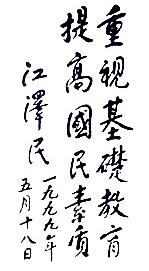 重視基礎教育
提高國民素质
江澤民
一九九九年
五月十八日